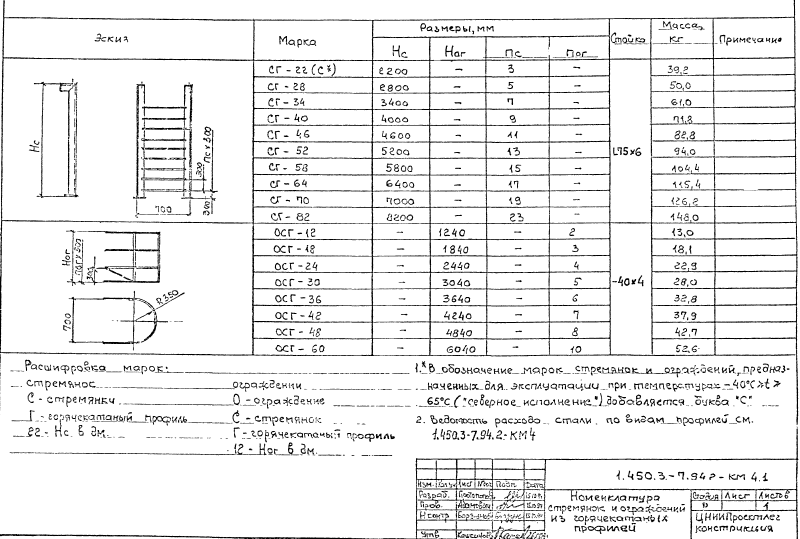 Эскиз Марка Размеры, мм Стойка Масса, кг Примечание
Нс Ног Пс Пог
СГ-22 (С*) 2200 — 3 — 39,2
СГ-28 2800 — 5 — 50,0
СГ-34 3400 — 7 — 61,0
СГ-40 4000 — 9 — 71,8
СГ-46 4600 — 11 — 82,8
СГ-52 5200 — 13 — L75х6 94,0
СГ-58 5800 — 15 — 104,4
СГ-64 6400 — 17 — 115,4
СГ-70 7000 — 19 — 126,2
СГ-82 8200 — 23 — 148,0
Нс
Пс х 300
300
700
300
ОСГ-12 — 1240 — 2 13,0
ОСГ-18 — 1840 — 3 18,1
ОСГ-24 — 2440 — 4 22,9
ОСГ-30 — 3040 — 5 -40х4 28,0
ОСГ-36 — 3640 — 6 32,8
ОСГ-42 — 4240 — 7 37,9
ОСГ-48 — 4840 — 8 42,7
ОСГ-60 — 6040 — 10 52,6
Ног
Пог х 300
300
R350
700
Расшифровка марок:
стремянос ограждении
С - стремянки О - ограждение
Г - горячекатаный профиль С - стремянок
22 - Нс в дм. Г - горячекатаный профиль
12 - Ног в дм.
1.* В обозначение марок стремянок и ограждений, предназ-
наченных для эксплуатации при температурах -40°С>t>
65°С ("северное исполнение") добавляется буква "С"
2. Ведомость расхода стали по видам профилей см.
1.450.3-7.94.2-КМ4
1.450.3-7.94.2-КМ 4.1
Изм. Кол.уч Лист №док Подп. Дата
Разраб.
Пров.
Н.контр.
Утв.
Номенклатура
стремянок и ограждений
из горячекатаных
профилей
Стадия Лист Листов
Р 1
ЦНИИПроектлег
конструкция